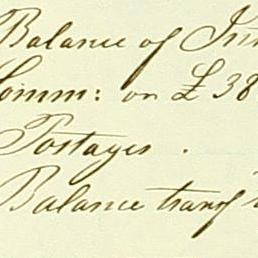 Balance of Int
Comm: on £ 38
Postages .
Balance transf